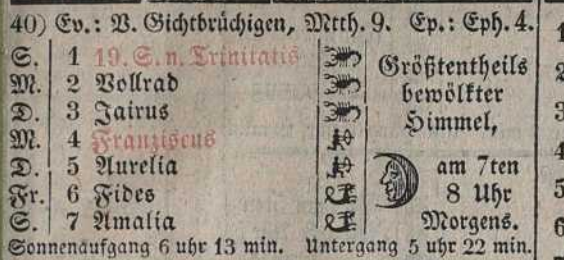 40) Ev.: V. Gichtbrüchigen, Mtth. 9. Ep.: Eph. 4.
S. 1 19. S. n. Trinitatis
M. 2 Vollrad
D. 3 Jairus
M. 4 Franziscus
D. 5 Aurelia
Fr. 6 Fides
S. 7 Amalia
Größtentheils
bewölkter
Himmel,
am 7ten
8 Uhr
Morgens.
Sonnenaufgang 6 uhr 13 min. Untergang 5 uhr 22 min.